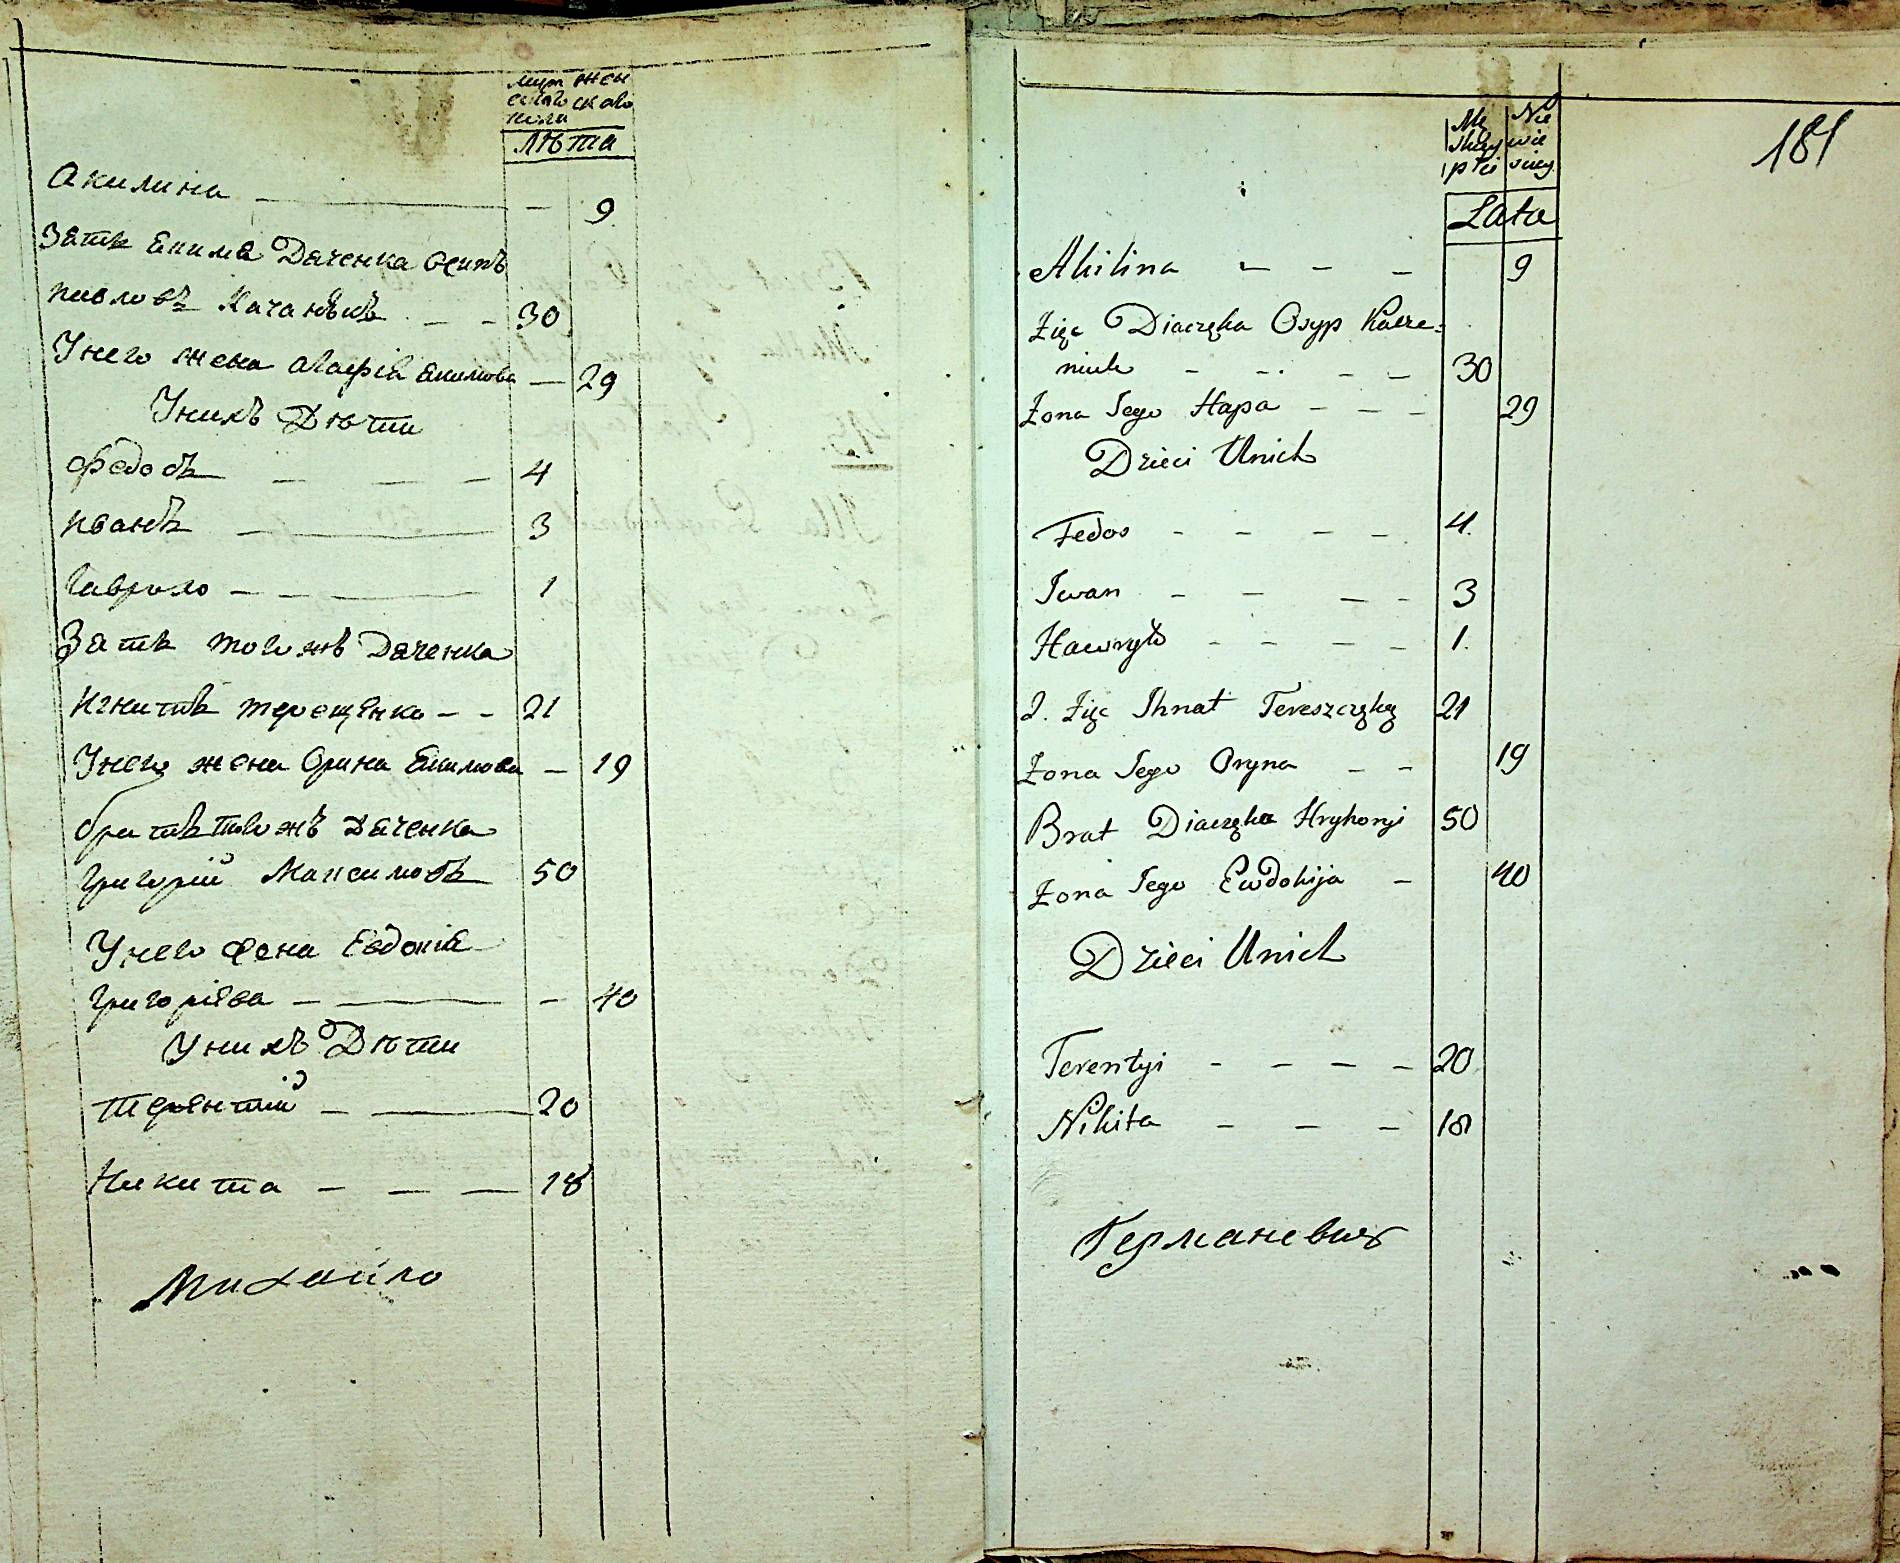 муж жен
скаго скаго
пола
Лѣта
Акилина — — 9
Зять Екима Даченка Осипъ
Павловъ Качановъ — — 30
Унего жена Агафія Екимова — 29
Унихъ Дѣти
Федосъ — — — 4
Иванъ — 3
Гаврило — — — 1
Зять тогожъ Даченка
Игнатъ терещенко — — 21
Унего жена Орина Екимова — 19
братъ тогожъ Даченка
Григорій Максимовъ 50
Унего жена Евдокія
Григоріева — — — 40
Унихъ Дѣти
терентій — — 20
Никита — — — 18
Михайло
Mę Nie
skiey wie
płci sciey
181
Lata
Akilina — — — 9
Zięć Diaczęka Osyp Kacze=
niuk — — — — 30
Żona Jego Hapa — — — 29
Dzieci Unich
Fedos — — — — 4.
Iwan — — — — 3
Hawryło — — — — 1.
2. Zięć Ihnat Tereszczęko 21
Żona Jego Oryna — — 19
Brat Diaczęka Hryhoryi 50
Żona Jego Ewdokija — 40
Dzieci Unich
Terentyi — — — — 20
Nikita — — — 18
Германевичъ